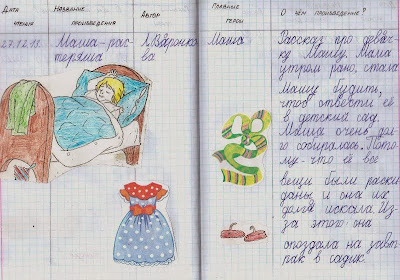 ДАТА ЧТЕНИЯ
НАЗВАНИЕ ПРОИЗВЕДЕНИЯ
АВТОР
ГЛАВНЫЕ ГЕРОИ
О ЧЁМ ПРОИЗВЕДЕНИЕ?
27.12.13
Маша-рас-
теряша
Л.Воронко-
ва
Маша
Рассказ про девоч-
ку Машу. Мама
утром рано, стала
Машу будить,
чтоб отвести её
в детский сад.
Маша очень дол-
го собиралась. Пото-
му-что её все
вещи были раски-
даны, и она их
долго искала. Из-
за этого она
опоздала на завт-
рак в садик.